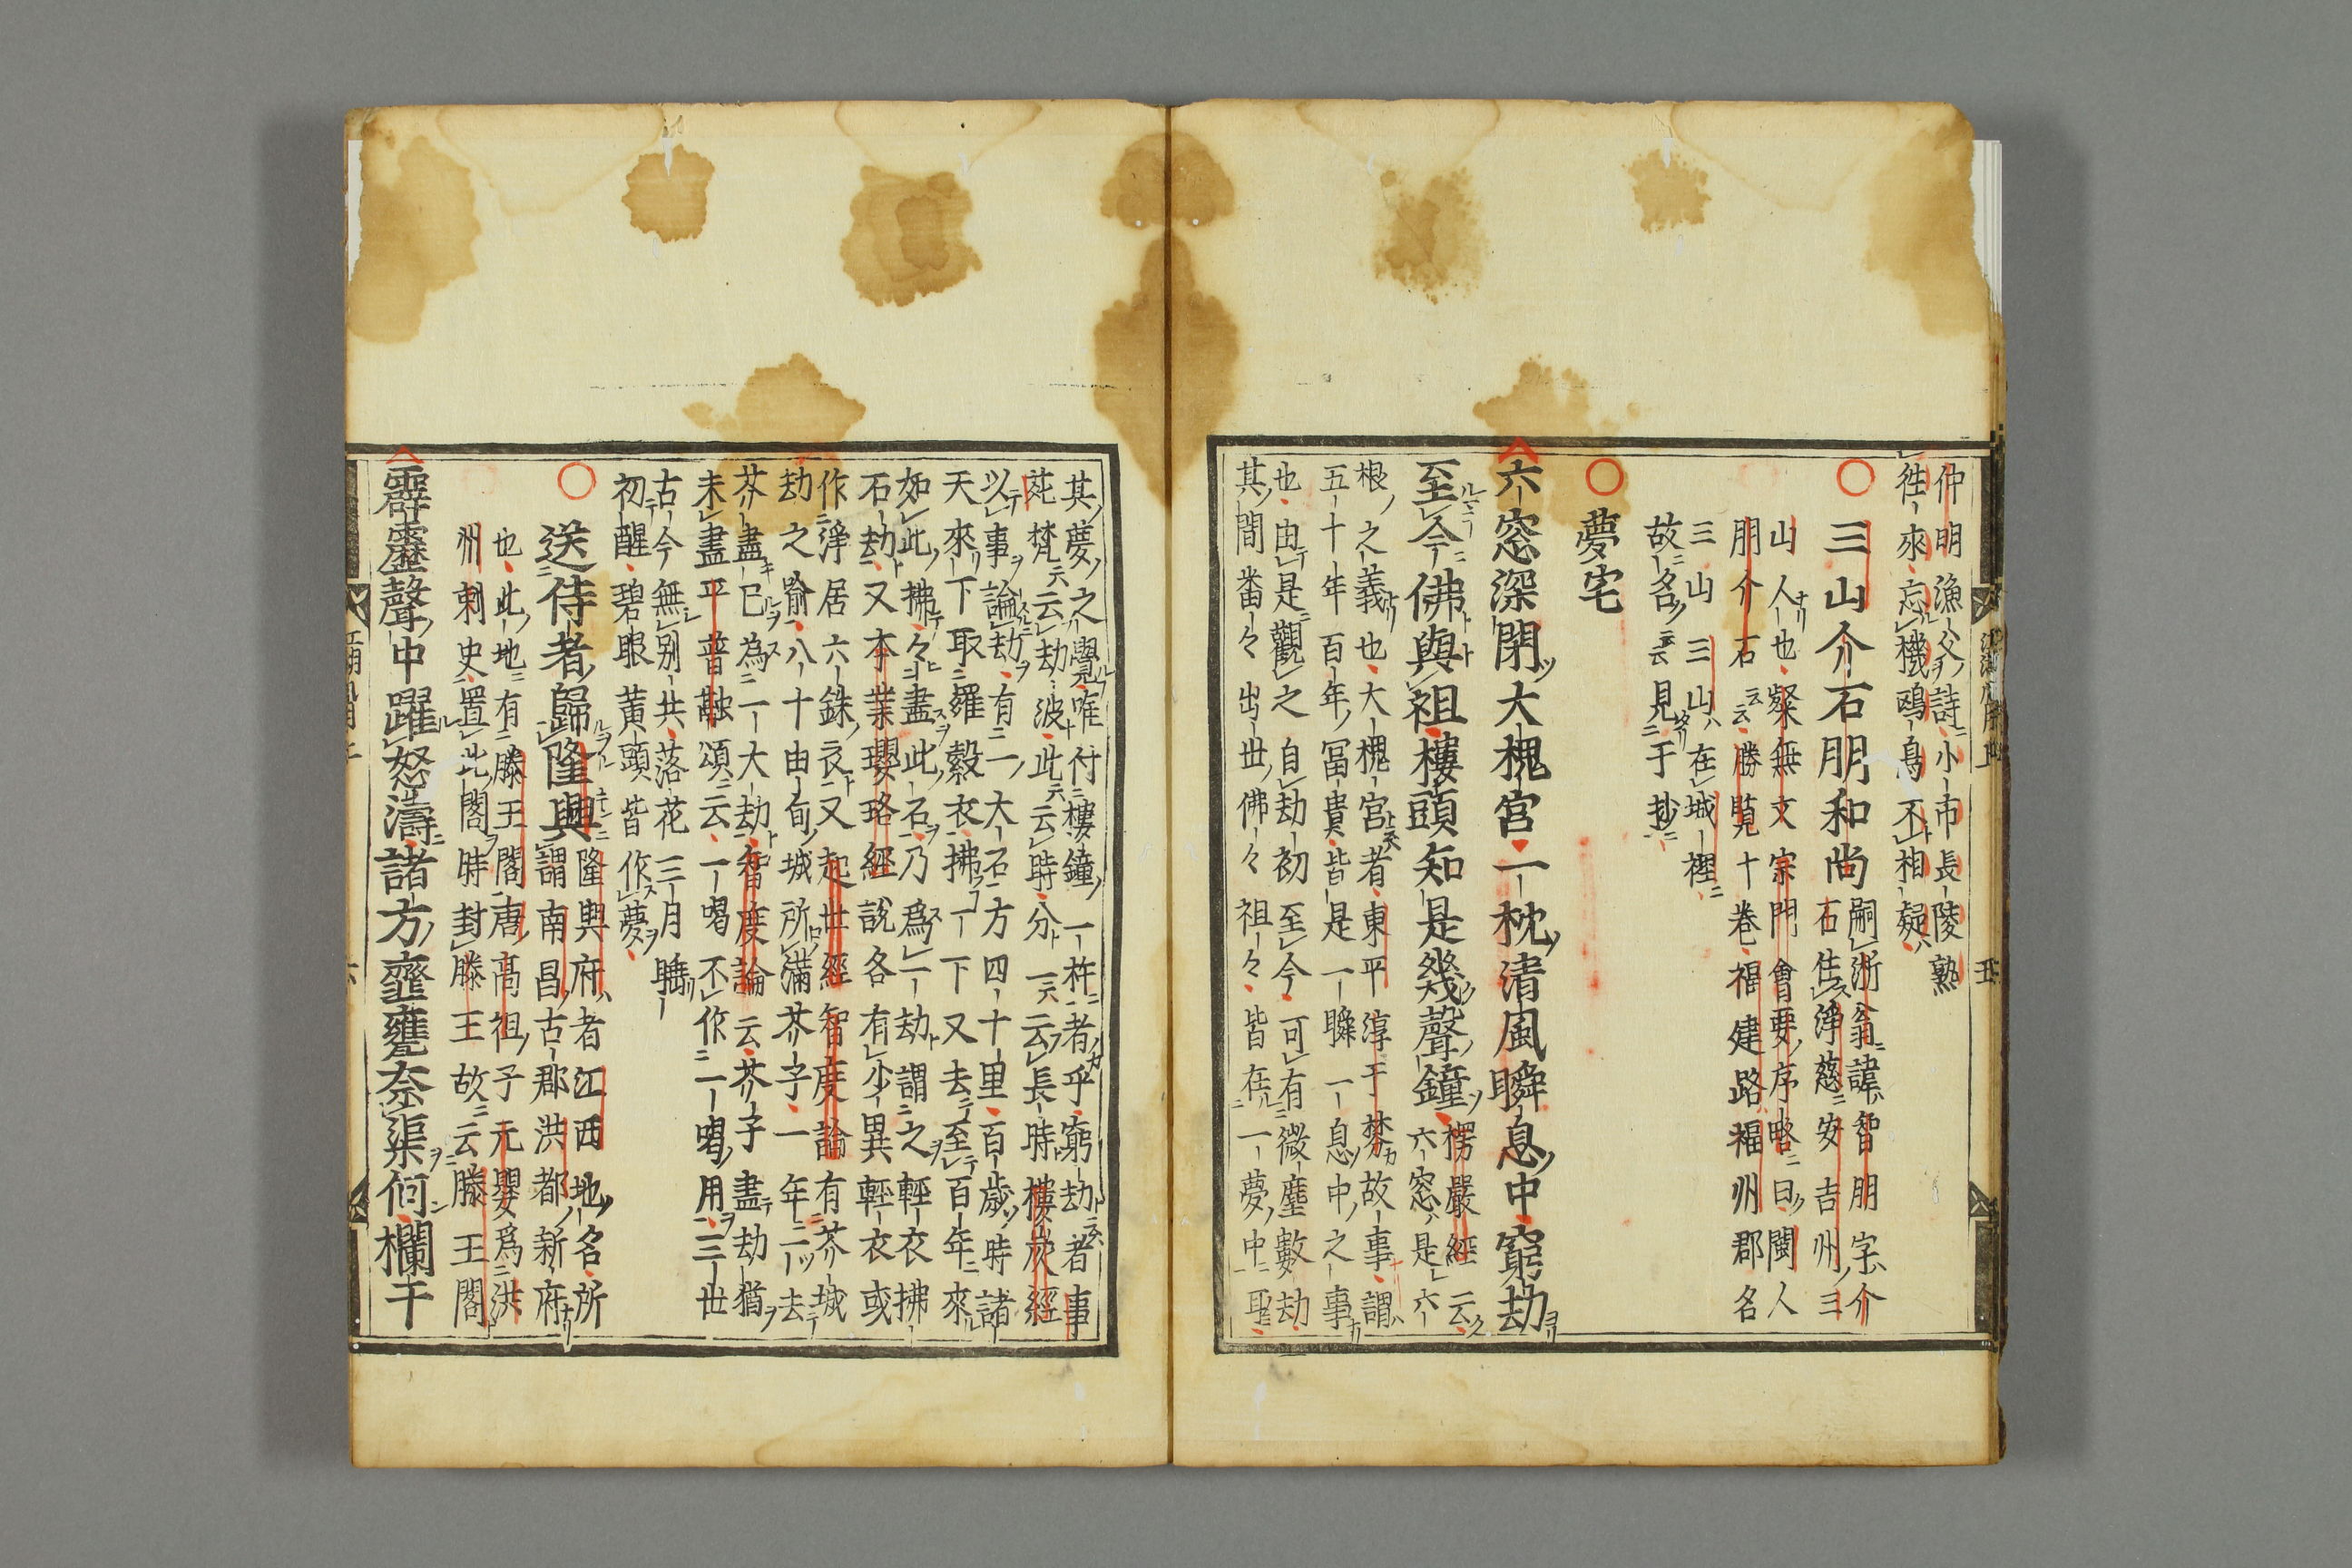 仲明漁父詩小市長陵熟
徃來忘機鴎鳥不相疑
三山介石朋和尚
嗣浙翁諱智朋字介
石住浄慈安吉州三
山人也粲無文宗門會要序略曰閩人
朋介石云云勝覧十巻福建路福州郡名
三山三山在城裡
故名云云見于抄
夢宅
六窓深閉大槐宮一枕清風瞬息中窮劫
至今佛與祖樓頭知是幾聲鐘
楞嚴經云
六窓是六
根之義也大槐宮者東平淳于棼故事謂
五十年百年冨貴皆是一瞬一息中之事
也由是觀之自劫初至今可有微塵數劫
其間畨々出世佛々祖々皆在一夢中耳
其夢之覺唯付樓鐘一杵者乎窮劫者事
苑梵云劫波此云時分一云長時樓炭經
以事論劫有一大石方四十里百歳時諸
天來下取羅縠衣拂一下又去至百年來
如此拂々盡此石乃爲一劫謂之輕衣拂
石劫又本業瓔珞經説各有少異輕衣或
作淨居六銖衣又起世經智度論有芥城
劫之喻八十由旬城所滿芥子一年二去
芥盡已為一大劫智度論云芥子盡劫猶
未盡平普融頌云一喝不作一喝用三世
古今無别共落花三月䳌
初醒碧眼黄頭皆作夢
送侍者歸隆興
隆興府者江西地名所
謂南昌古郡洪都新府
也此地有滕王閣唐高祖子元嬰爲洪
州刺史置此閣時封滕王故云滕王閣
霹靂聲中躍怒濤諸方虀甕奈渠何欄干
五